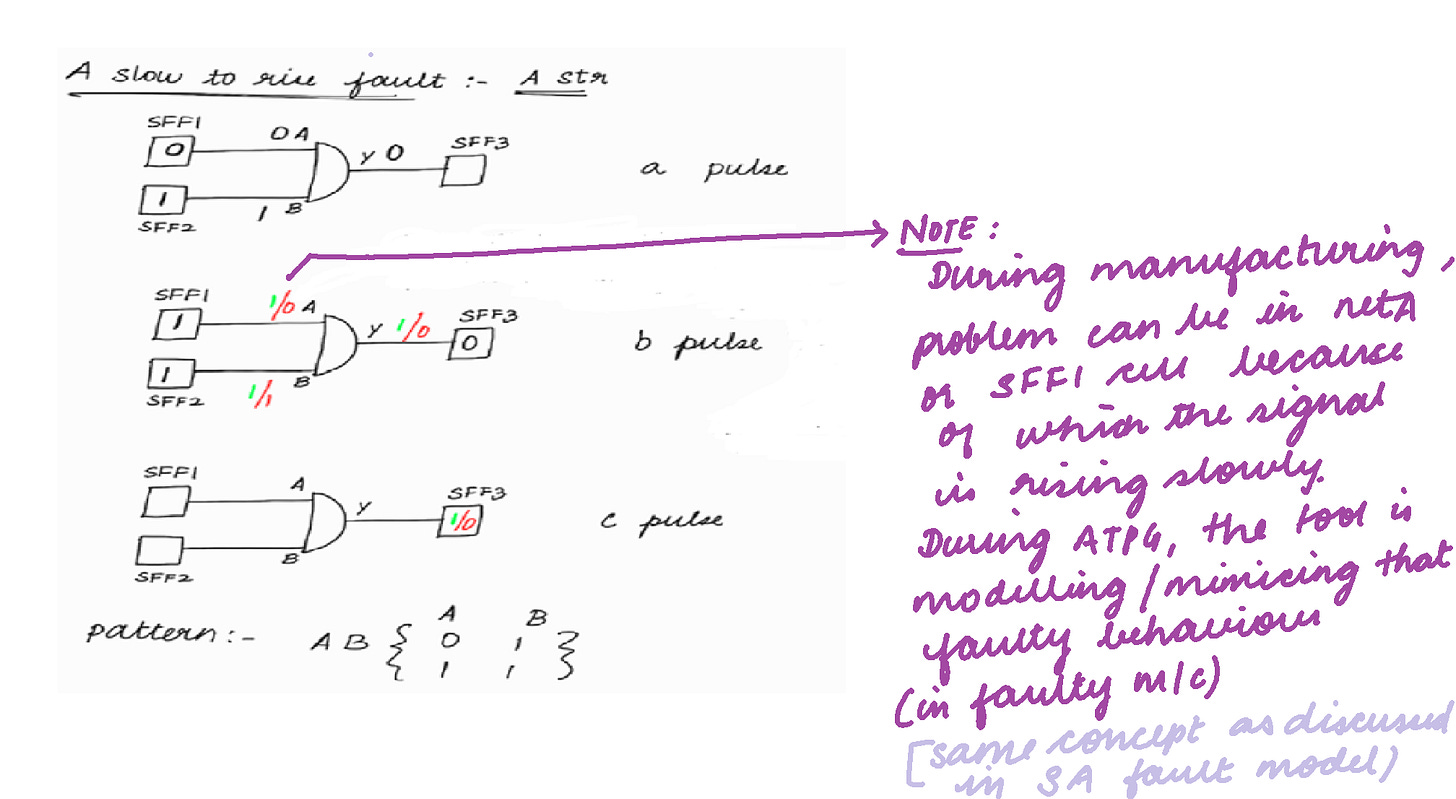 A slow to rise fault :- A str
SFF1
0
0 A
1
1 B
SFF2
Y 0
SFF3
a pulse
SFF1
1
1/0 A
1
1/1 B
SFF2
Y 1/0
SFF3
0
b pulse
SFF1
A
B
SFF2
Y
SFF3
1/0
c pulse
pattern :- A B { A B
0 , 1
1 , 1 }
NOTE :
During manufacturing ,
problem can be in netA
or SFF1 cell because
of which the signal
is rising slowly.
During ATPG, the tool is
modelling / mimicing that
faulty behaviour
(in faulty m/c)
[same concept as discussed
in SA fault model)